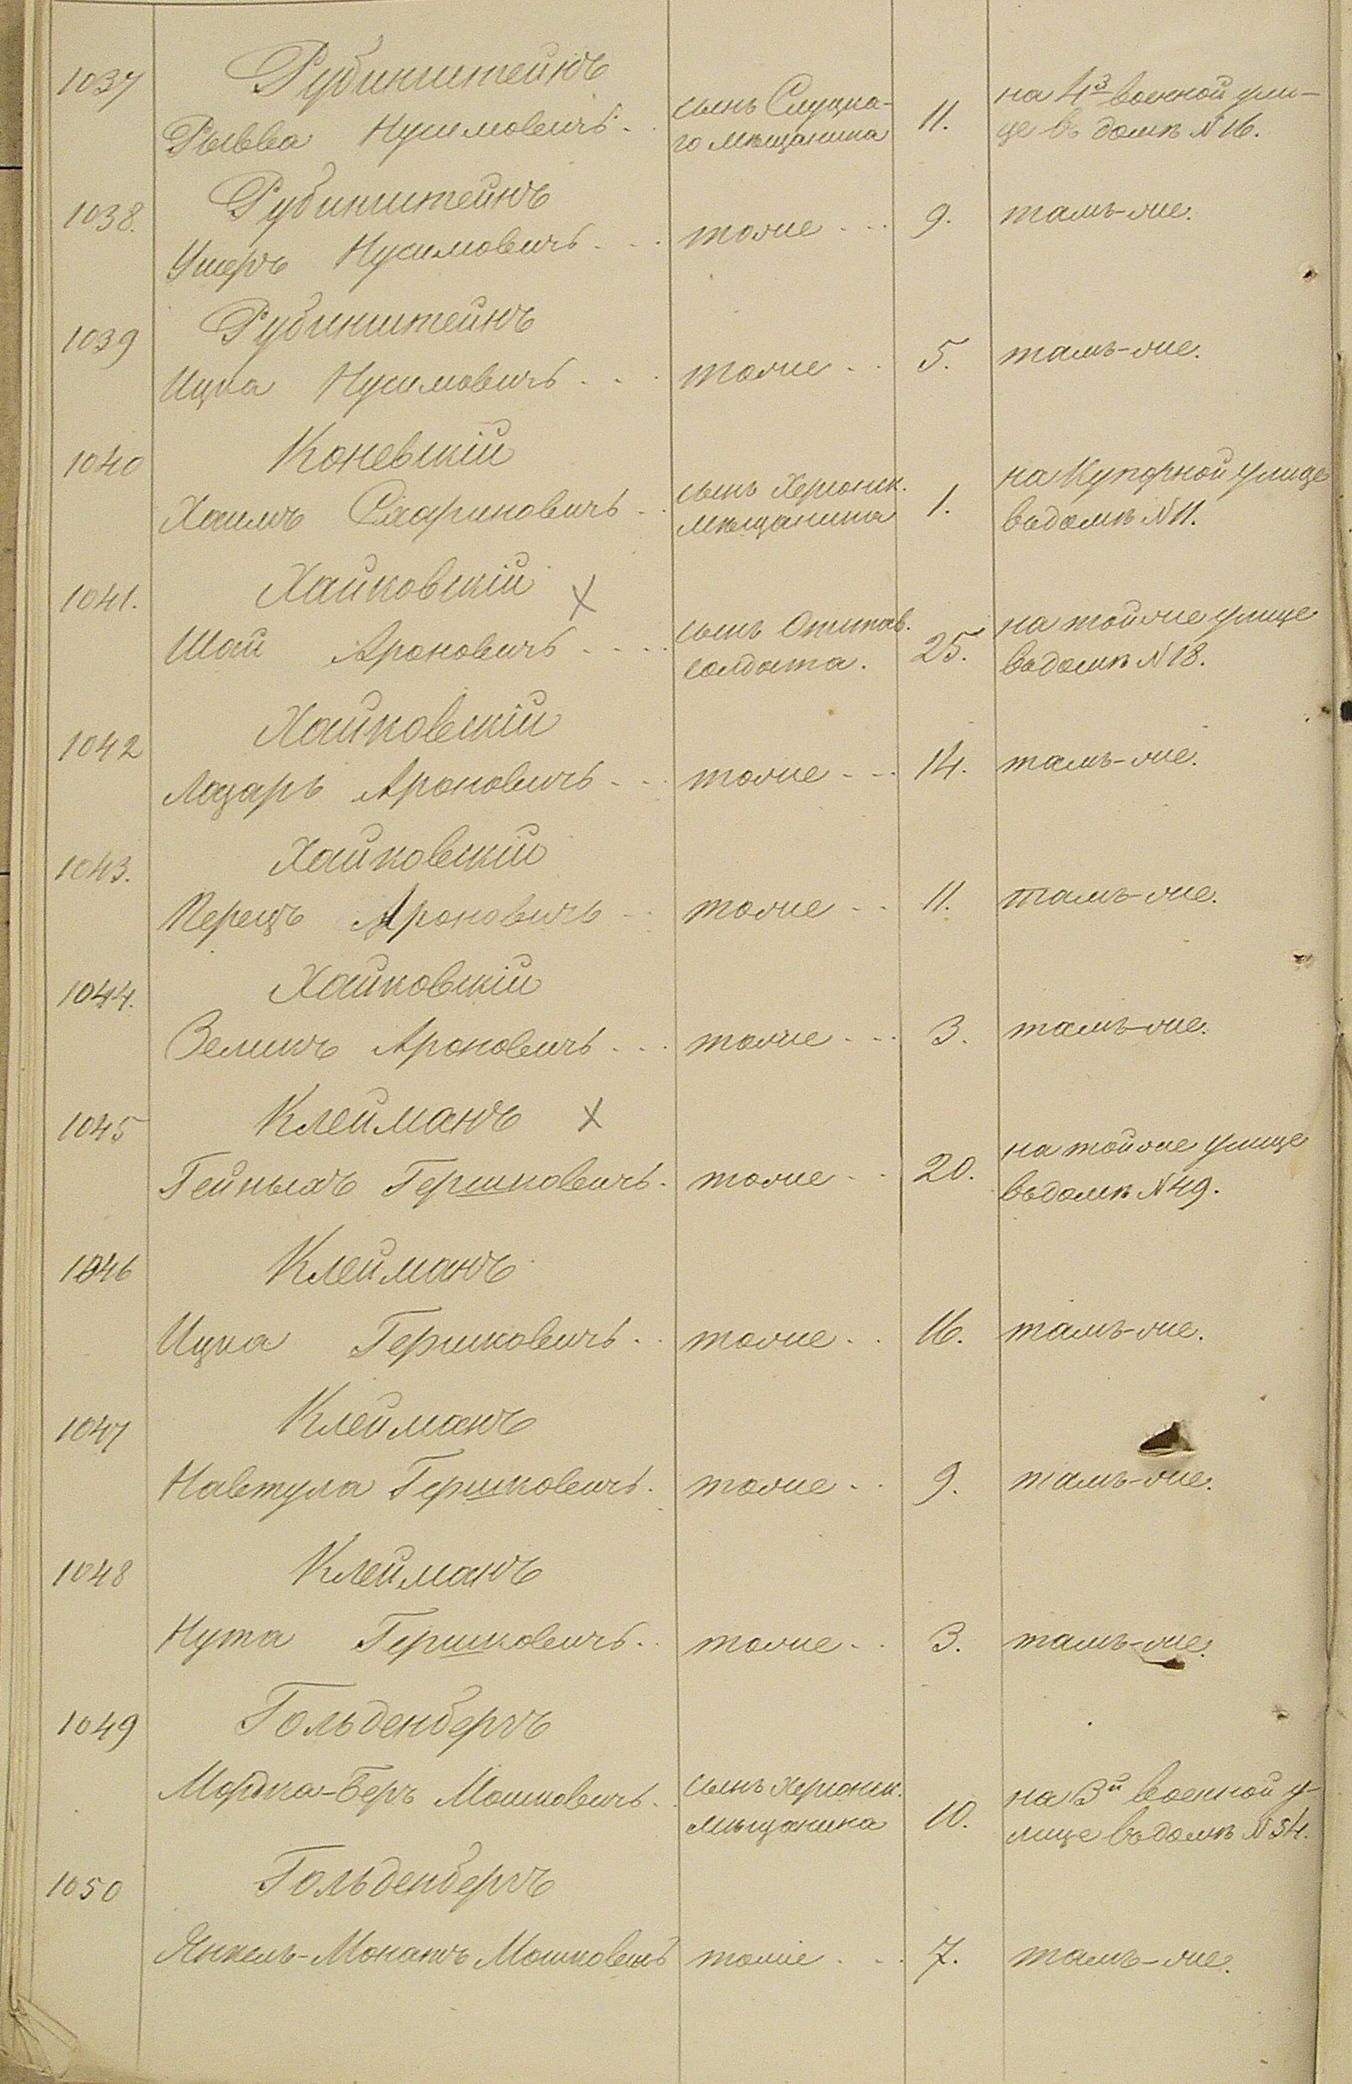 1037 Рубинштейнъ
Рывва Нусимовичъ. сынъ Слуцка-
го мѣщанина 11. на 4й военной ули-
це въ домѣ №16.
1038. Рубинштейнъ
Ушеръ Нусимовичъ. . . тоже . . . 9. тамъ-же.
1039 Рубинштейнъ
Ицка Нусимовичъ. . . тоже . . 5. тамъ-же.
1040 Коневскій
Хаимъ . . сынъ Херсонск.
мѣщанина 1. на Купорной улице
въ домѣ №11.
1041. Хайковскій х
Шай Ароновичъ . . . . сынъ Отстав.
солдата. 25. на той же улице
въ домѣ №18.
1042 Хайковскій
Лазарь Ароновичъ . . . тоже . . . 14. тамъ-же.
1043. Хайковскій
Перецъ Ароновичъ . . тоже . . 11. тамъ-же.
1044. Хайковскій
Зеликъ Ароновичъ . . . тоже . . . 3. тамъ-же.
1045 Клейманъ х
Гейныхъ Гершковичъ. тоже . . 20. на той же улице
въ домѣ №49.
1046 Клейманъ
Ицка Гершковичъ. . тоже . . 16. тамъ-же.
1047 Клейманъ
Навтула Гершковичъ. тоже . . 9. тамъ-же.
1048 Клейманъ
Нута Гершковичъ. . тоже . . 3. тамъ-же.
1049 Гольденбергъ
Мордка-Беръ Мошковичъ. сынъ Херсонск.
мѣщанина 10. на 3й военной у-
лице въ домѣ №54.
1050 Гольденбергъ
Янкель-Монашъ Мошковичъ тоже . . . 7. тамъ-же.